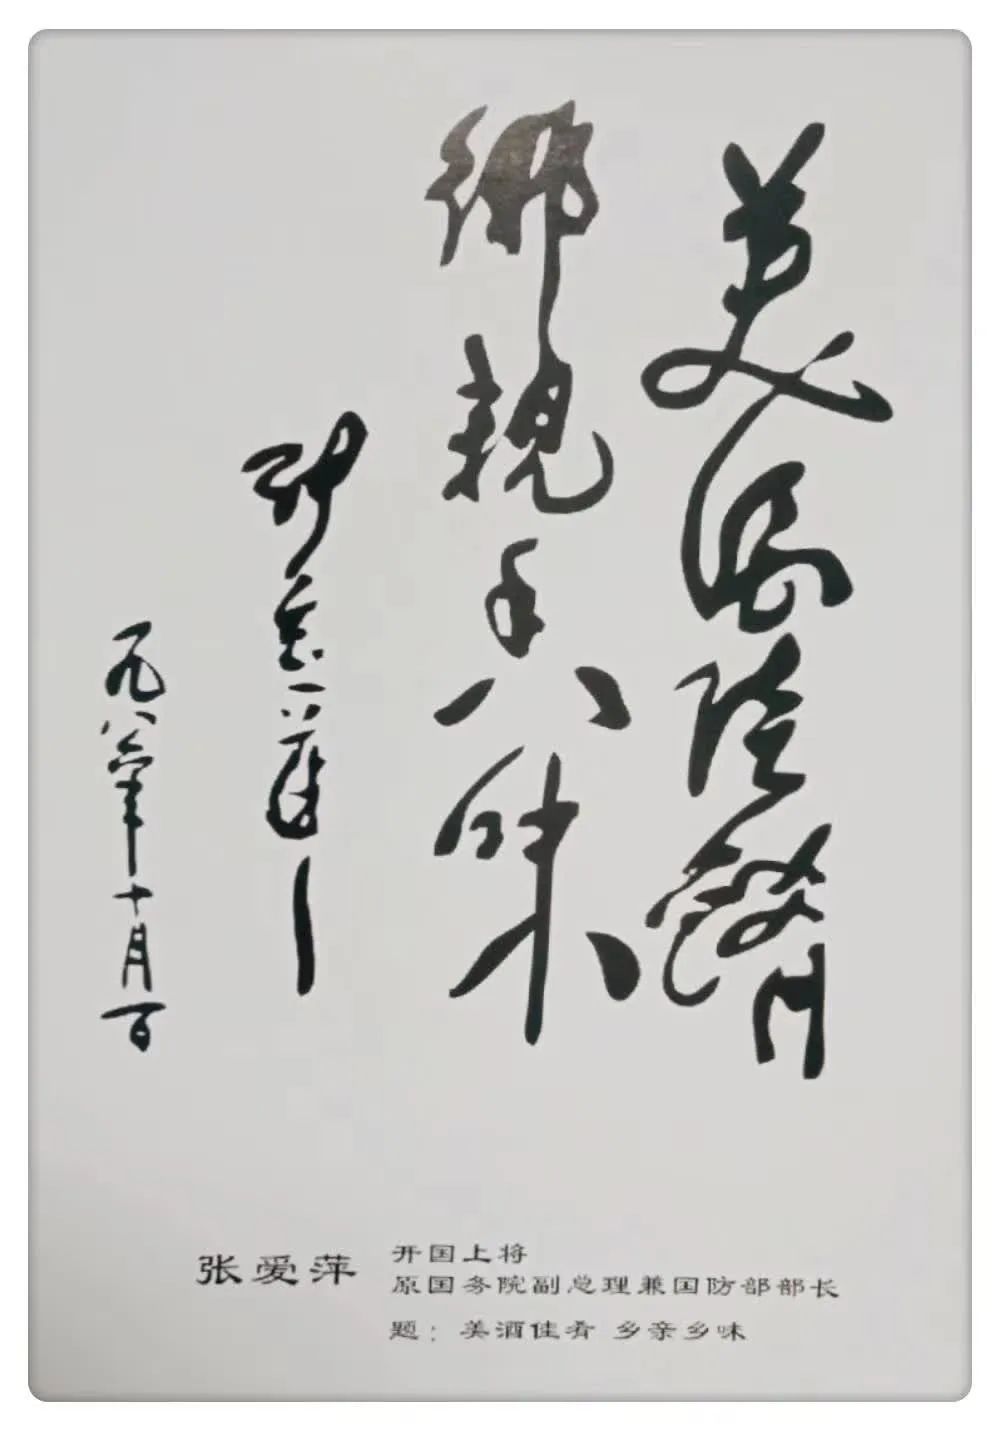 美酒佳餚
鄉親味
张爱萍
一九八年十月一日
张爱萍
开国上将
原国务院副总理兼国防部部长
题：美酒佳肴 乡亲乡味